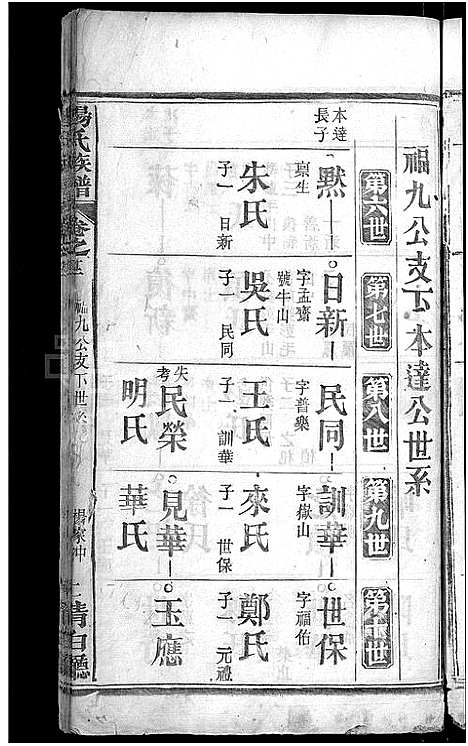 福九公支下本達公世系
第六世
第七世
第八世
第九世
第十世
本達長子
默
稟生
朱氏
子一 日新
日新
字孟齋
號牛山
吳氏
子一 民同
民同
字普樂
王氏
子一 訓華
失考
民榮
明氏
訓華
字嶽山
來氏
子一 世保
見華
華氏
世保
字福佑
鄭氏
子一 元禮
玉應
楊氏族譜
卷之
福九公支下世系
楊家冲
清白廳